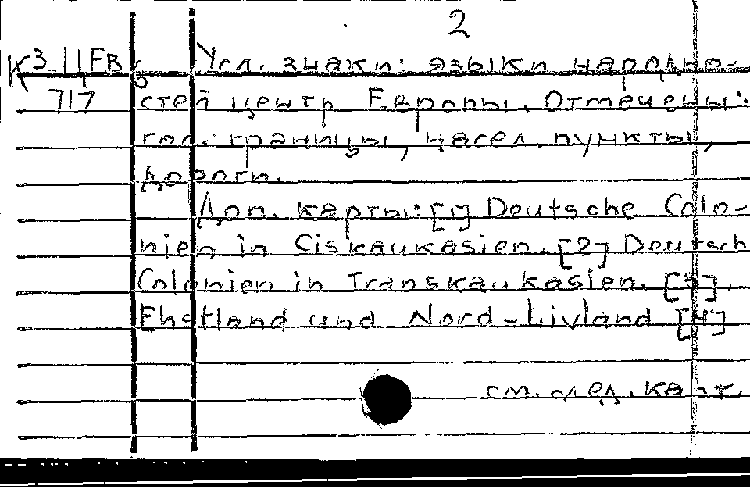 2
К3-11FB Усл. знаки: языки народно-
717 стей центр. Европы. Отмечены:
гос. границы, насел. пункты,
дороги.
Доп. карты: [1] Deutsche Colo-
nien in Ciskaukasien. [2] Deutsch
Colonien in Transkaukasien. [3]
Ehstland und Nord-Livland [4]
см. след. карт.